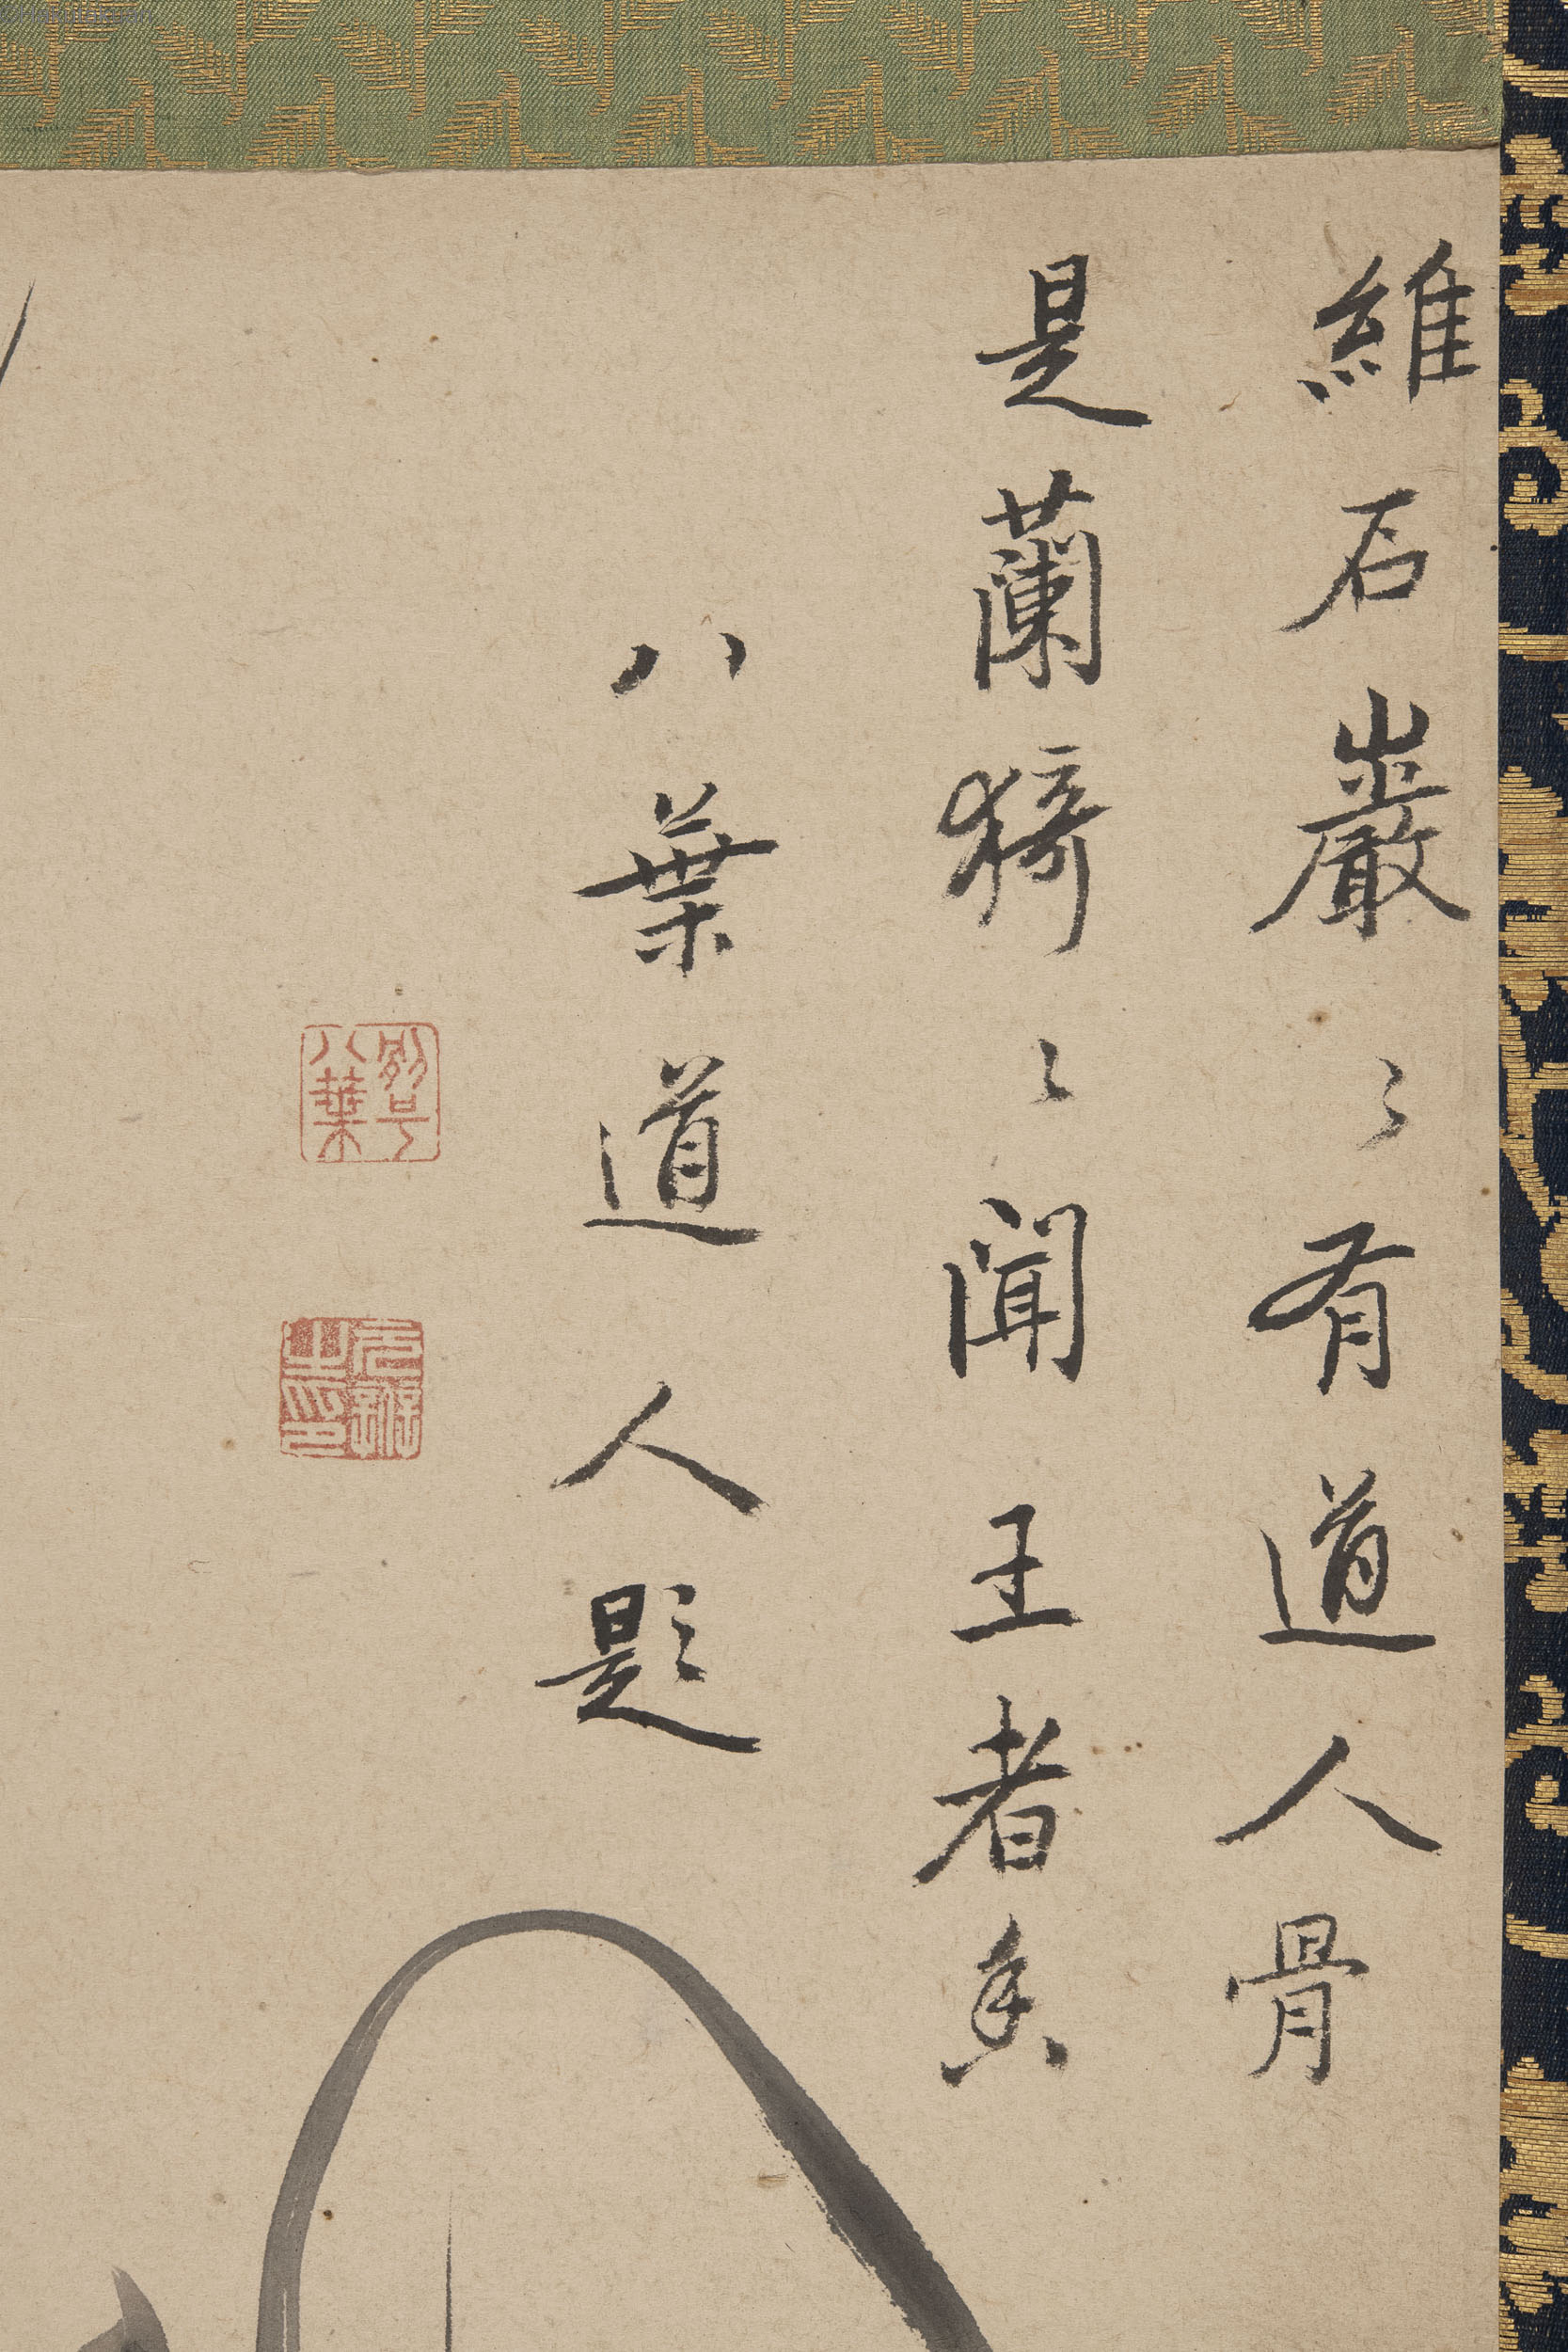 維石巖〻有道人骨
是蘭猗〻聞王者香
八葉道人題
別号八葉